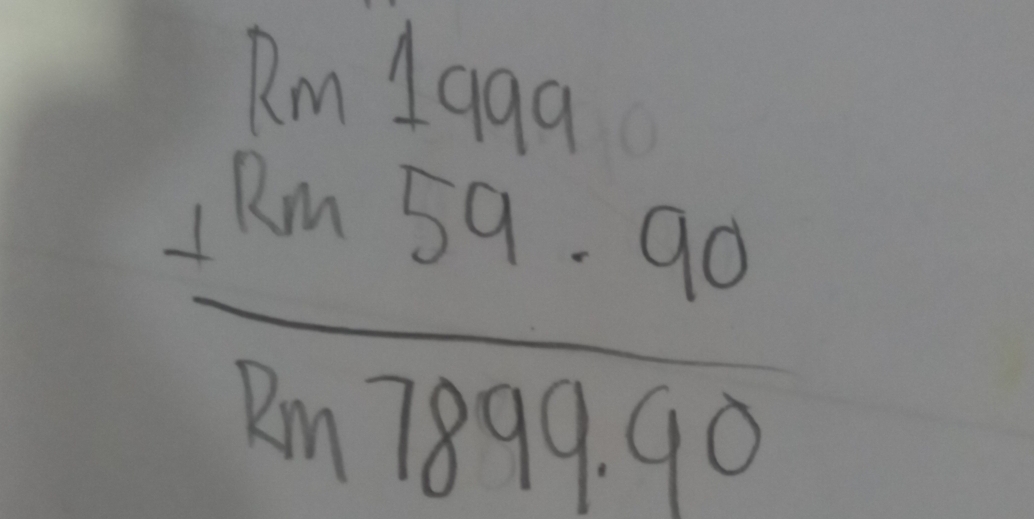 Rm 1999
+ Rm 59.90
Rm 7899.90